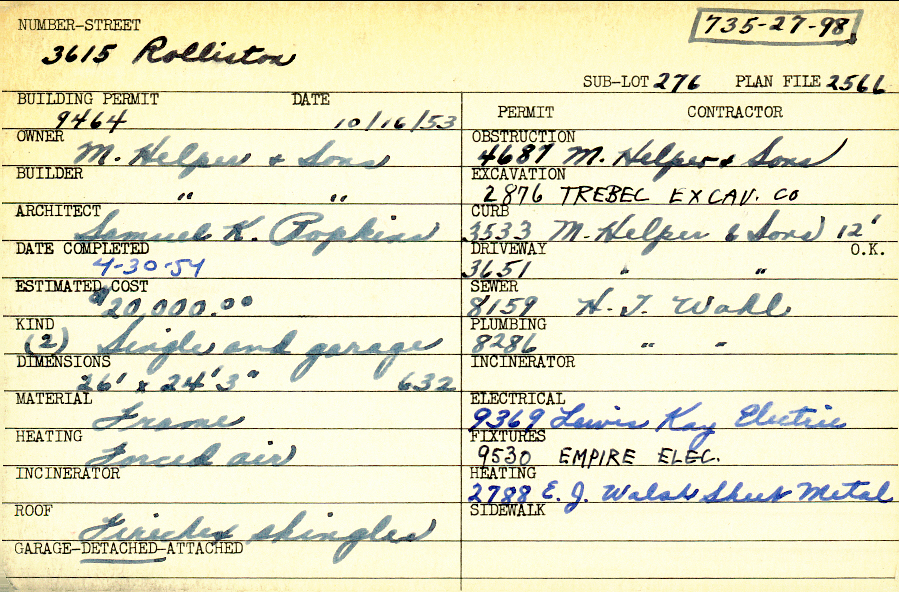 NUMBER-STREET
735-27-98
3615 Rolliston
SUB-LOT 276 PLAN FILE 2566
BUILDING PERMIT DATE
9464 10/16/53
OWNER
M. Helper & Sons
BUILDER
" "
ARCHITECT
Samuel K. Popkins
DATE COMPLETED
4-30-54
ESTIMATED COST
$20,000.00
KIND
(2) Single and garage
DIMENSIONS
26' x 24'3" 632
MATERIAL
Frame
HEATING
Forced air
INCINERATOR
ROOF
Firechex shingles
GARAGE-DETACHED-ATTACHED
PERMIT CONTRACTOR
OBSTRUCTION
4687 M. Helper & Sons
EXCAVATION
2876 TREBEC EXCAV. CO
CURB
3533 M. Helper & Sons 12'
DRIVEWAY O.K.
3651 " "
SEWER
8159 H. J. Wahl
PLUMBING
8286 " "
INCINERATOR
ELECTRICAL
9369 Lewis Kay Electric
FIXTURES
9530 EMPIRE ELEC.
HEATING
2788 E. J. Walsh Sheet Metal
SIDEWALK